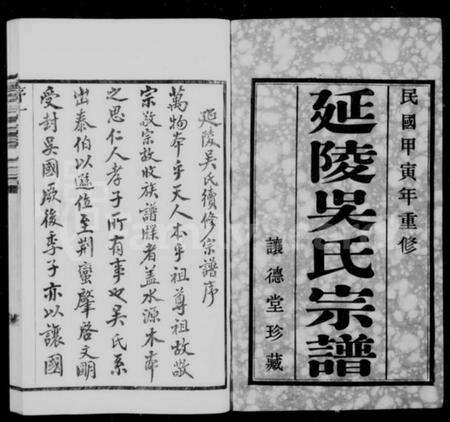 民國甲寅年重修
延陵吳氏宗譜
讓德堂珍藏
延陵吳氏續修宗譜序
萬物本乎天人本乎祖尊祖故敬
宗敬宗故收族譜牒者蓋水源木本
之思仁人孝子所有事也吳氏系
出泰伯以遜位至荆蠻肇啓文明
受封吳國厥後季子亦以讓國
序一